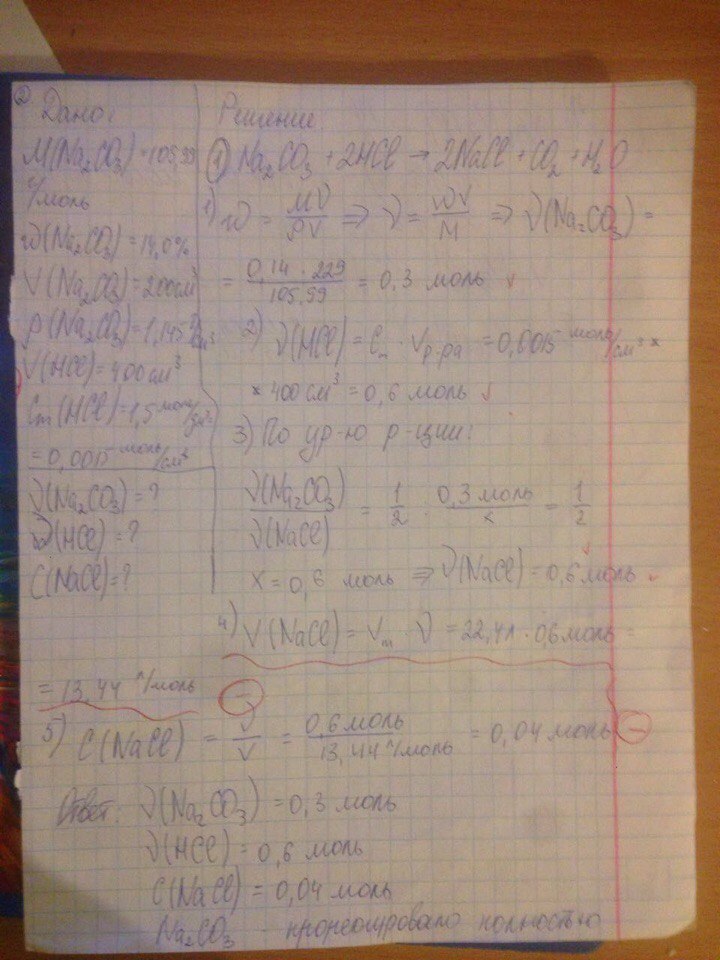 ② Дано:
M(Na₂CO₃) = 105,99
г/моль
ω(Na₂CO₃) = 14,0%
V(Na₂CO₃) = 200 см³
ρ(Na₂CO₃) = 1,145 г/см³
V(HCl) = 400 см³
Cm(HCl) = 1,5 моль/дм³
= 0,0015 моль/см³
ν(Na₂CO₃) = ?
ν(HCl) = ?
C(NaCl) = ?
Решение:
① Na₂CO₃ + 2HCl → 2NaCl + CO₂ + H₂O
1) ω = Mν/ρV ⇒ ν = ωV/M ⇒ ν(Na₂CO₃) =
= 0,14 · 229 / 105,99 = 0,3 моль
2) ν(HCl) = Cm · Vр-ра = 0,0015 моль/см³ ×
× 400 см³ = 0,6 моль
3) По ур-ю р-ции:
ν(Na₂CO₃)/ν(NaCl) = 1/2 ; 0,3 моль/x = 1/2
x = 0,6 моль ⇒ ν(NaCl) = 0,6 моль
4) V(NaCl) = Vm · ν = 22,4л · 0,6 моль =
= 13,44 л/моль
5) C(NaCl) = ν/V = 0,6 моль / 13,44 л/моль = 0,04 моль
Ответ: ν(Na₂CO₃) = 0,3 моль
ν(HCl) = 0,6 моль
C(NaCl) = 0,04 моль
Na₂CO₃ - прореагировало полностью